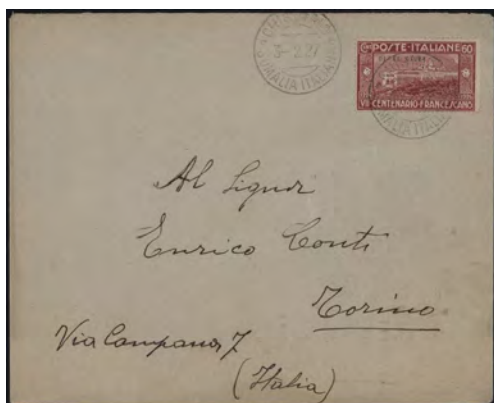 3-2.27
SOMALIA ITALIANA
POSTE·ITALIANE 60
VII·CENTENARIO·FRANCESCANO
SOMALIA ITALIANA
Al Signor
Enrico Conti
Torino
Via Campana 7
(Italia)